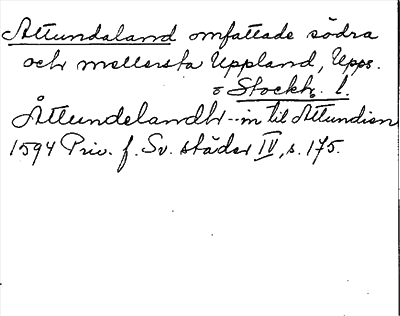 Attundaland omfattade södra
och mellersta Uppland, Upps.
o Stockh. l.
Åttundelandh--m til Attundien
1594 Priv. f. Sv. städer IV, s. 175.